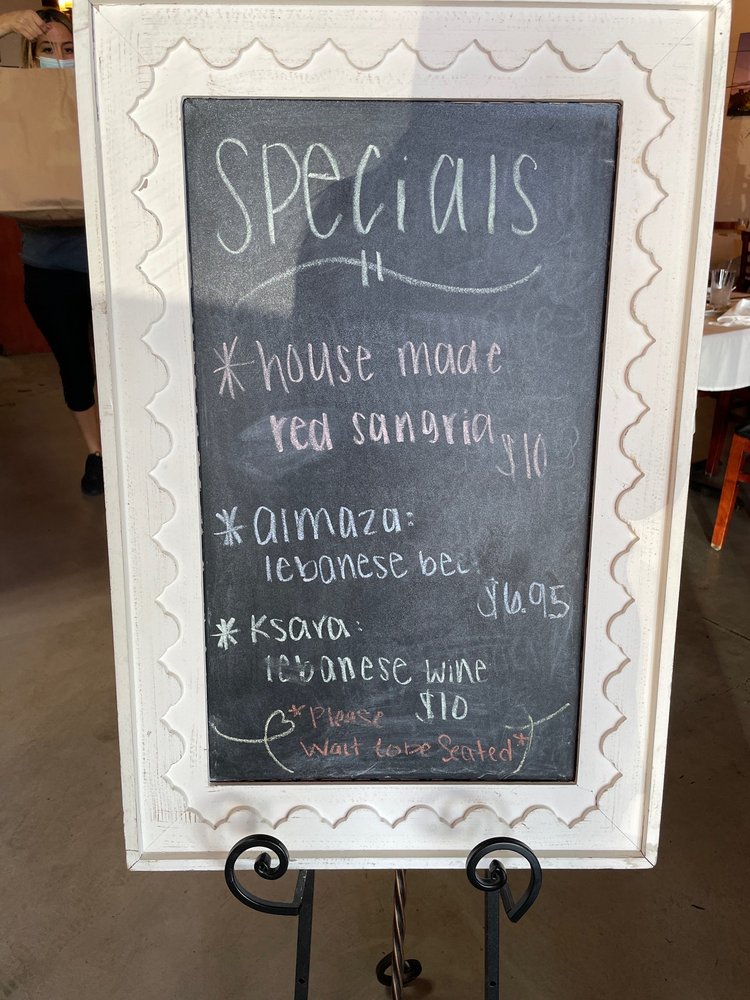 Specials
*house made
red sangria
$10
*almaza:
lebanese bee
$6.95
*Ksara:
lebanese wine
$10
*Please
Wait to be Seated*